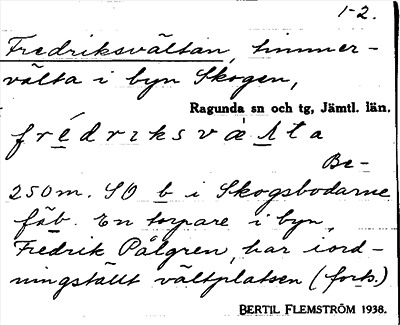 1-2.
Fredriksvältan, timmer-
välta i byn Skogen,
Ragunda sn och tg, Jämtl. län.
frédriksvæʌta
Be-
250 m. SO b i Skogsbodarne
fäb. En torpare i byn,
Fredrik Pålgren, har iord-
ningställt vältplatsen (forts.)
BERTIL FLEMSTRÖM 1938.